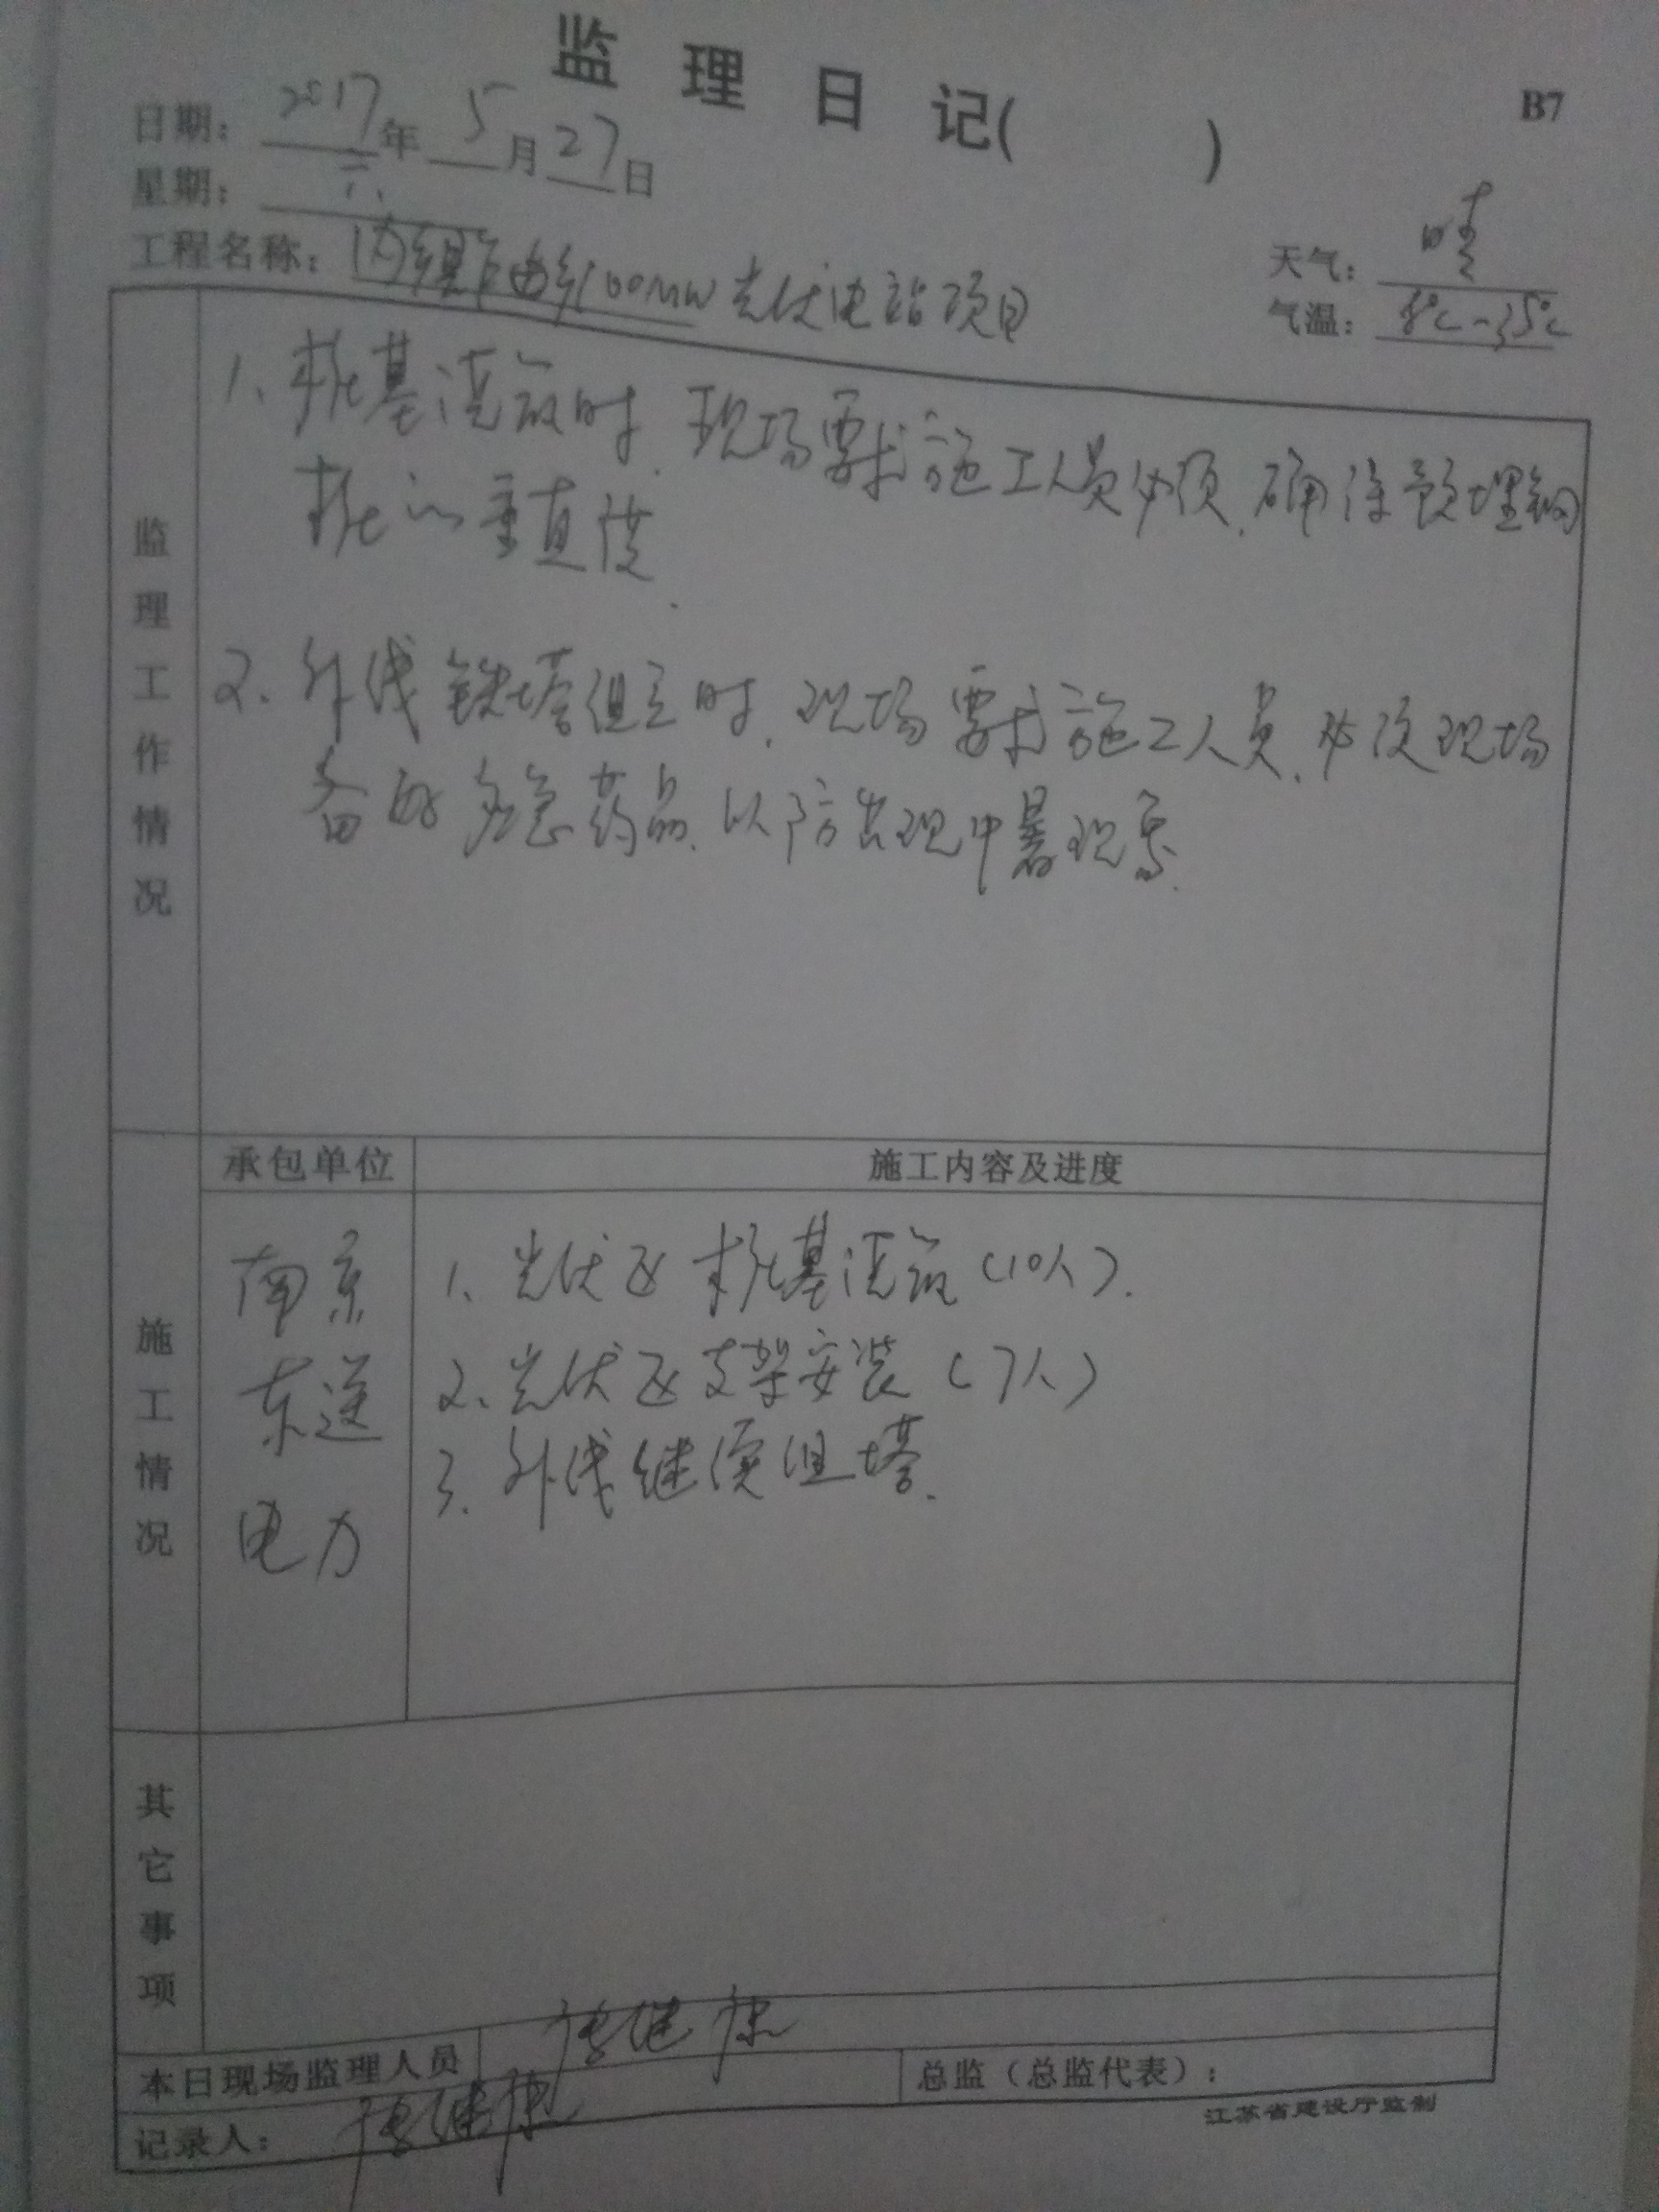 监 理 日 记(　　)
B7
日期: 2017年 5月27日
星期: 六
天气: 晴
工程名称: 100MW光伏电站项目
气温: 8℃-35℃
监理工作情况
1. 桩基浇筑时.现场要求施工人员必须.确保预埋钢
桩的垂直度.
2. 外线铁塔组立时.现场要求施工人员.必须现场
备好应急药品.以防出现中暑现象.
施工情况
承包单位
施工内容及进度
南京
东送
电力
1. 光伏区桩基浇筑(10人).
2. 光伏区支架安装(7人)
3. 外线继续组塔.
其它事项
本日现场监理人员
总监（总监代表）:
记录人:
江苏省建设厅监制